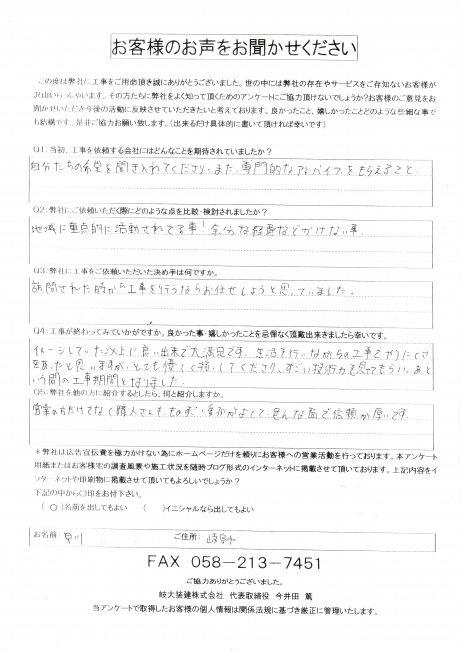 お客様のお声をお聞かせください
この度は弊社に工事をご用命頂き誠にありがとうございました。世の中には弊社の存在やサービスをご存知ないお客様が
沢山いらっしゃいます。その方たちに弊社をよく知って頂くためのアンケートにご協力頂けないでしょうか？お客様のご意見をお
聞かせいただき今後の活動に反映させていただきたいと考えております。良かったこと、嬉しかったことどのような些細な事で
も結構です、是非ご協力お願い致します。（出来るだけ具体的に書いて頂ければ幸いです）
Q1：当初、工事を依頼する会社にはどんなことを期待されていましたか？
自分たちの希望を聞き入れてくださり、また、専門的なアドバイスをもらえること。
Q2：弊社にご依頼いただく際にどのような点を比較・検討されましたか？
地域に重点的に活動されてる事！余分な経費などかけない事。
Q3：弊社に工事をご依頼いただいた決め手は何ですか。
訪問された時から工事を行うならお任せしようと思っていました。
Q4：工事が終わってみていかがですか。良かった事・嬉しかったことを忌憚なく頂戴出来きましたら幸いです。
イメージしていた以上に良い出来で大満足です。生活を行いながらの工事でやりにくさ
もあったと思いますが、とても優しく接してくださり、すごい技術力を見てもらい、あっと
いう間の工事期間となりました。
Q5：弊社を他の方に紹介するとしたら、何と紹介しますか。
営業の方だけでなく職人さんも、ものすごい愛想がよくて、色んな面で信頼が厚いです。
＊弊社は広告宣伝費を極力かけない為にホームページだけを頼りにお客様への営業活動を行っております。本アンケート
用紙またはお客様宅の調査風景や施工状況を随時ブログ形式のインターネットに掲載させて頂いております。上記内容をイ
ンターネットや印刷物に掲載させて頂いてもよろしいでしょうか？
下記の中から〇印をお付下さい。
（ 〇 ）名前を出してもよい （ ）イニシャルなら出してもよい
お名前： 早川 ご住所： 岐阜市
FAX 058-213-7451
ご協力ありがとうございました。
岐大装建株式会社 代表取締役 今井田 篤
当アンケートで取得したお客様の個人情報は関係法規に基づき厳正に管理いたします。